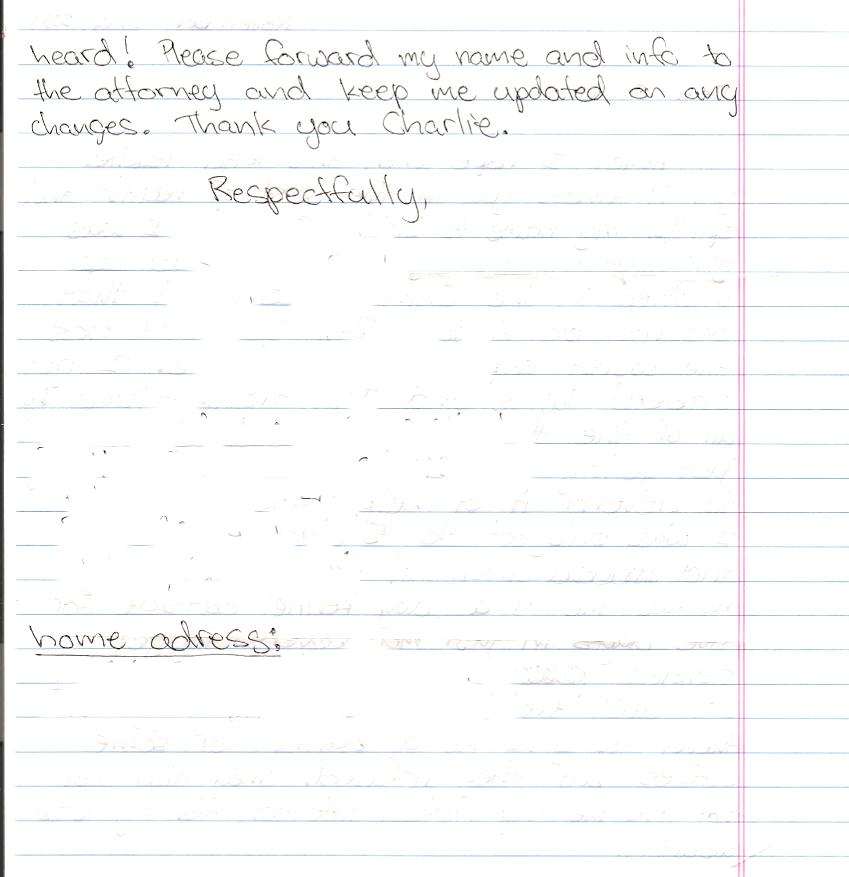 heard! Please forward my name and info to
the attorney and keep me updated on any
changes. Thank you Charlie.
Respectfully,
home adress: